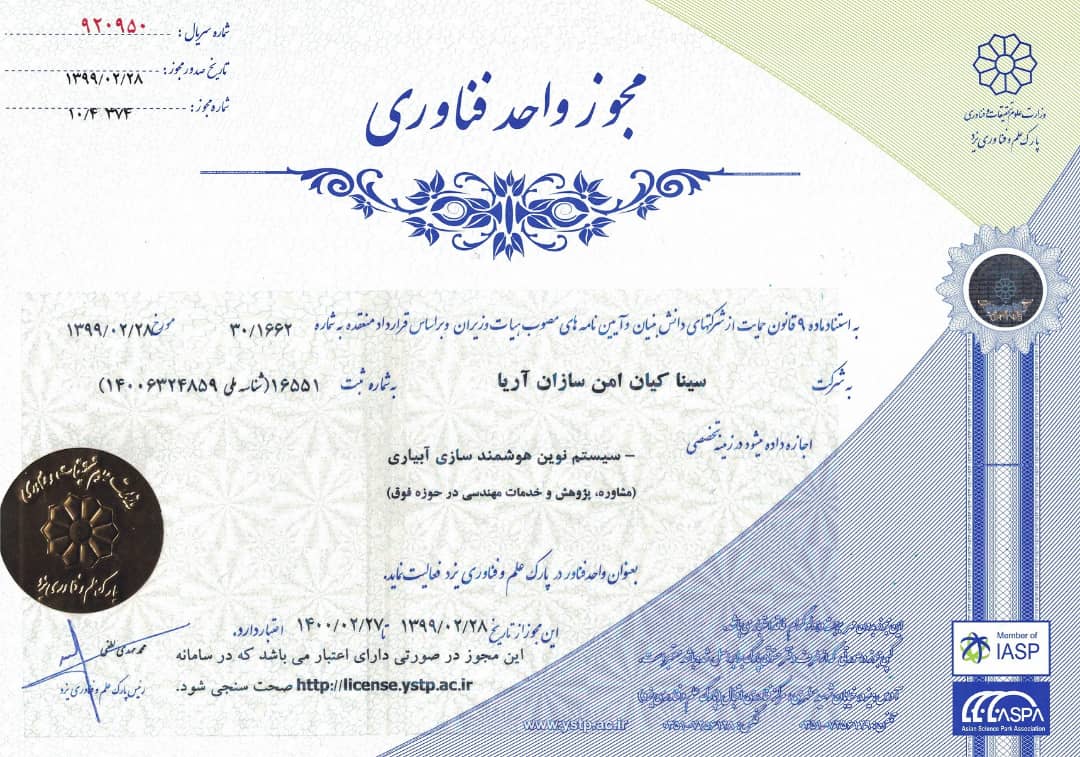 شماره سریال: ۹۲۰۹۵۰
تاریخ صدور مجوز: ۱۳۹۹/۰۲/۲۸
شماره مجوز: ۱۰/۴ ۳۷۴
وزارت علوم تحقیقات و فناوری
پارک علم و فناوری یزد
مجوز واحد فناوری
به استناد ماده ۹ قانون حمایت از شرکتهای دانش بنیان و آیین نامه های مصوب هیات وزیران و بر اساس قرارداد منعقده به شماره ۳۰/۱۶۶۲ مورخ ۱۳۹۹/۰۲/۲۸
به شرکت سینا کیان امن سازان آریا به شماره ثبت ۱۶۵۵۱(شناسه ملی ۱۴۰۰۶۳۲۴۸۵۹)
اجازه داده میشود در زمینه تخصصی
– سیستم نوین هوشمند سازی آبیاری
(مشاوره، پژوهش و خدمات مهندسی در حوزه فوق)
بعنوان واحد فناور در پارک علم و فناوری یزد فعالیت نماید.
این مجوز از تاریخ ۱۳۹۹/۰۲/۲۸ تا ۱۴۰۰/۰۲/۲۷ اعتبار دارد.
این مجوز در صورتی دارای اعتبار می باشد که در سامانه
http://license.ystp.ac.ir صحت سنجی شود.
محمد مهدی لطفی
رئیس پارک علم و فناوری یزد
پارک علم و فناوری یزد
www.ystp.ac.ir
Member of
IASP
ASPA
Asian Science Park Association